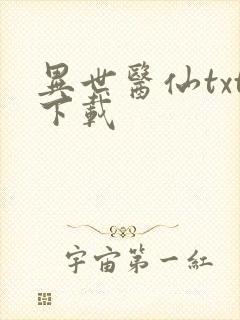 異世醫仙txt
下載
宇宙第一紅